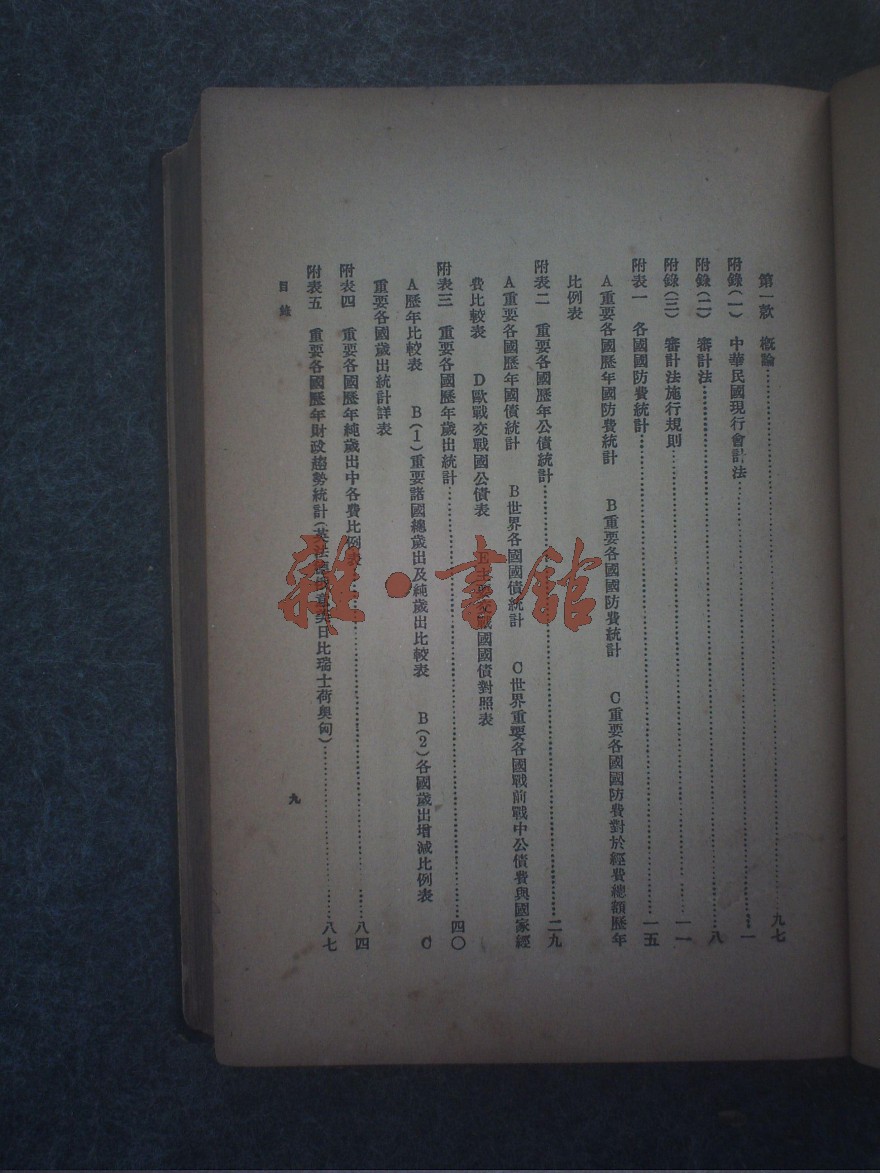 第一款　概論……九七
附錄(一)　中華民國現行會計法……一
附錄(二)　審計法……八
附錄(三)　審計法施行規則……一一
附表一　各國國防費統計……一五
A重要各國歷年國防費統計　B重要各國國防費統計　C重要各國國防費對於經費總額歷年
比例表
附表二　重要各國歷年公債統計……二九
A重要各國歷年國債統計　B世界各國國債統計　C世界重要各國戰前戰中公債費與國家經
費比較表　D歐戰交戰國公債表　E主要交戰國國債對照表
附表三　重要各國歷年歲出統計……四〇
A歷年比較表　B(1)重要諸國總歲出及純歲出比較表　B(2)各國歲出增減比例表　C
重要各國歲出統計詳表
附表四　重要各國歷年純歲出中各費比例表……八四
附表五　重要各國歷年財政趨勢統計(英法德俄意美日比瑞士荷奧匈)……八七
目錄
九
雜·書館